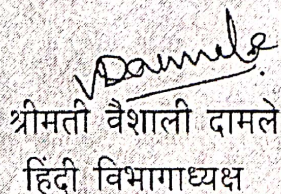 VDamle
श्रीमती वैशाली दामले
हिंदी विभागाध्यक्ष